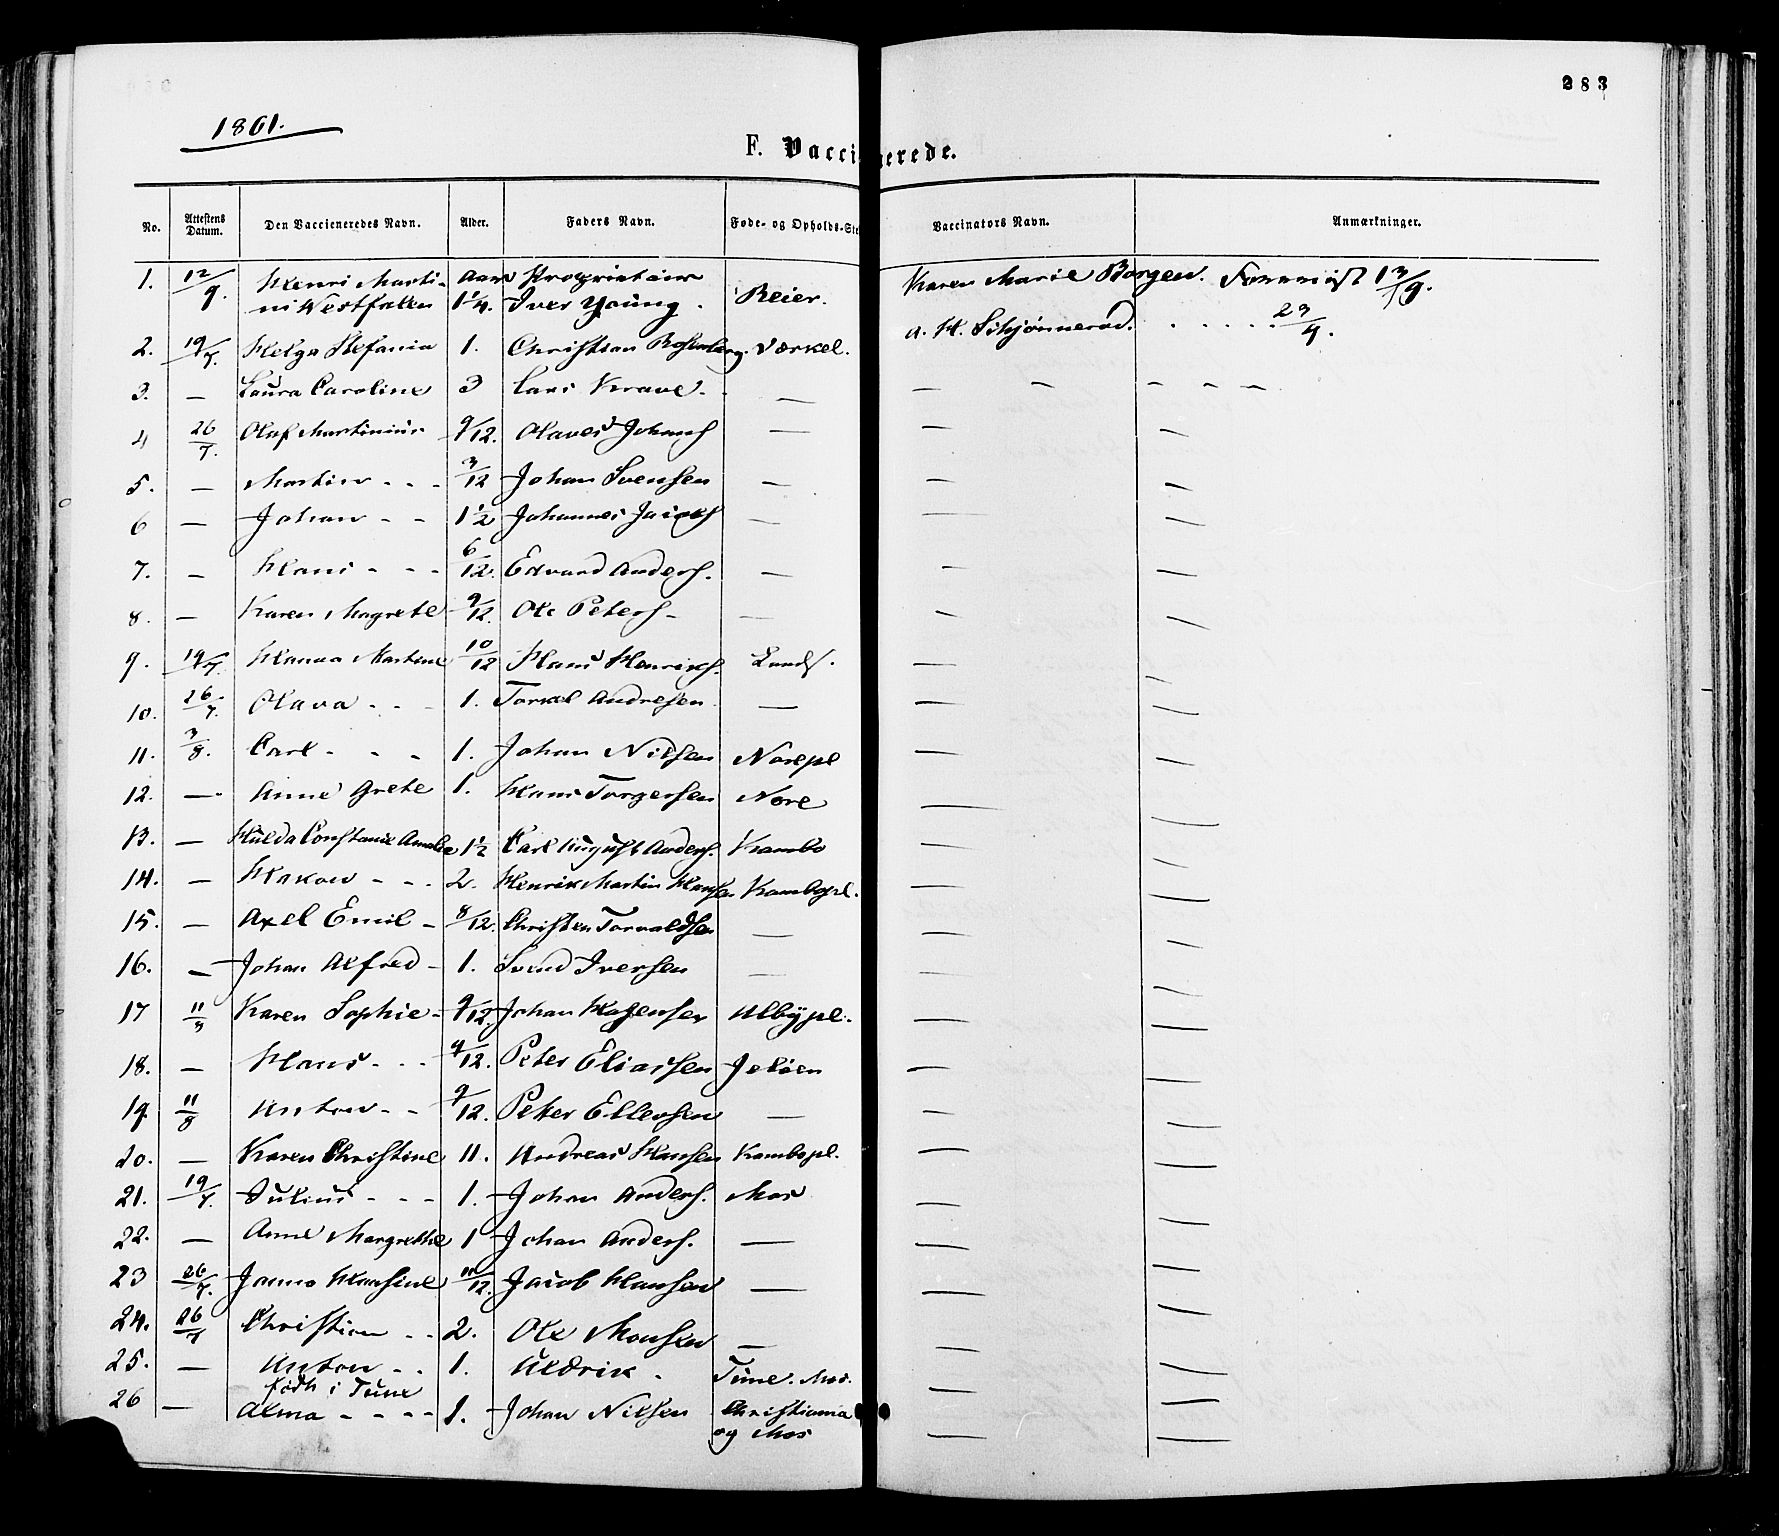 283
1861.
F. Vaccienerede.
No. Attestens Datum. Den Vaccieneredes Navn. Alder. Faders Navn. Føde- og Opholds-Ste Vaccinators Navn. Anmærkninger.
1. 12/9. Henri Marti- Aar Proprietair Karen Marie Borgen. Foreviist 13/9.
ni Westfalen 1 1/4. Iver Young. Reier.
2. 19/7. Helga Stefania 1. Christian Rosenberg. Værkel. A. H. Schjønnerød. . . . . . 23/9.
3. — Laura Caroline 3 Lars Krave. — — — — — —
4 26/7. Oluf Martinius 9/12. Olaves Johans — — —
5. — Martin - - - 3/12 Johan Svensen — — —
6 — Johan - - 1 1/2 Johannes Jacobs — — —
7. — Hans - - - 6/12. Edvard Anders. — — —
8. — Karen Magrete 9/12. Ole Peters — — —
9. 19/7. Hanna Martine 10/12 Hans Henriks. Lunds. — —
10. 26/7. Olava - - - 1. Torkel Andresen — — —
11. 3/8. Carl - - - 1. Johan Nilsen Norepl — —
12. — Anne Grete 1. Hans Torgersen Nore — —
13. — Hulda Constanse Amalie 1 1/2 Carl August Anders. Kambo — —
14. — Hakon - - - 2. Henrik Martin Hansen Kambopl. — —
15. — Axel Emil - 8/12. Christen Torvaldsen — — —
16. — Johan Alfred - 1. Svend Iversen — — —
17 11/3 Karen Sophie - 9/12. Johan Albypl. — —
18. — Hans - - - 9/12. Peter Eliassen Jeløen — —
19. 11/8 Anton - - 9/12. Peter Ellevsen — — —
20. — Karen Christine 11. Andreas Hansen Kambopl. — —
21. 19/7. Julius - - - 1. Johan Anders. Mos — —
22. — Anne Margrethe 1 Johan Anders. — — —
23 26/7. Hansine 11/12. Jacob Hansen — — —
24. 26/7 Christian - - 2. Ole Monsen — — —
25. — Anton - - 1. Uldrik. Tune. Mos. — —
født i Tune
26 — Alma - - - - 1. Johan Nilsen Christiania — —
og Mos